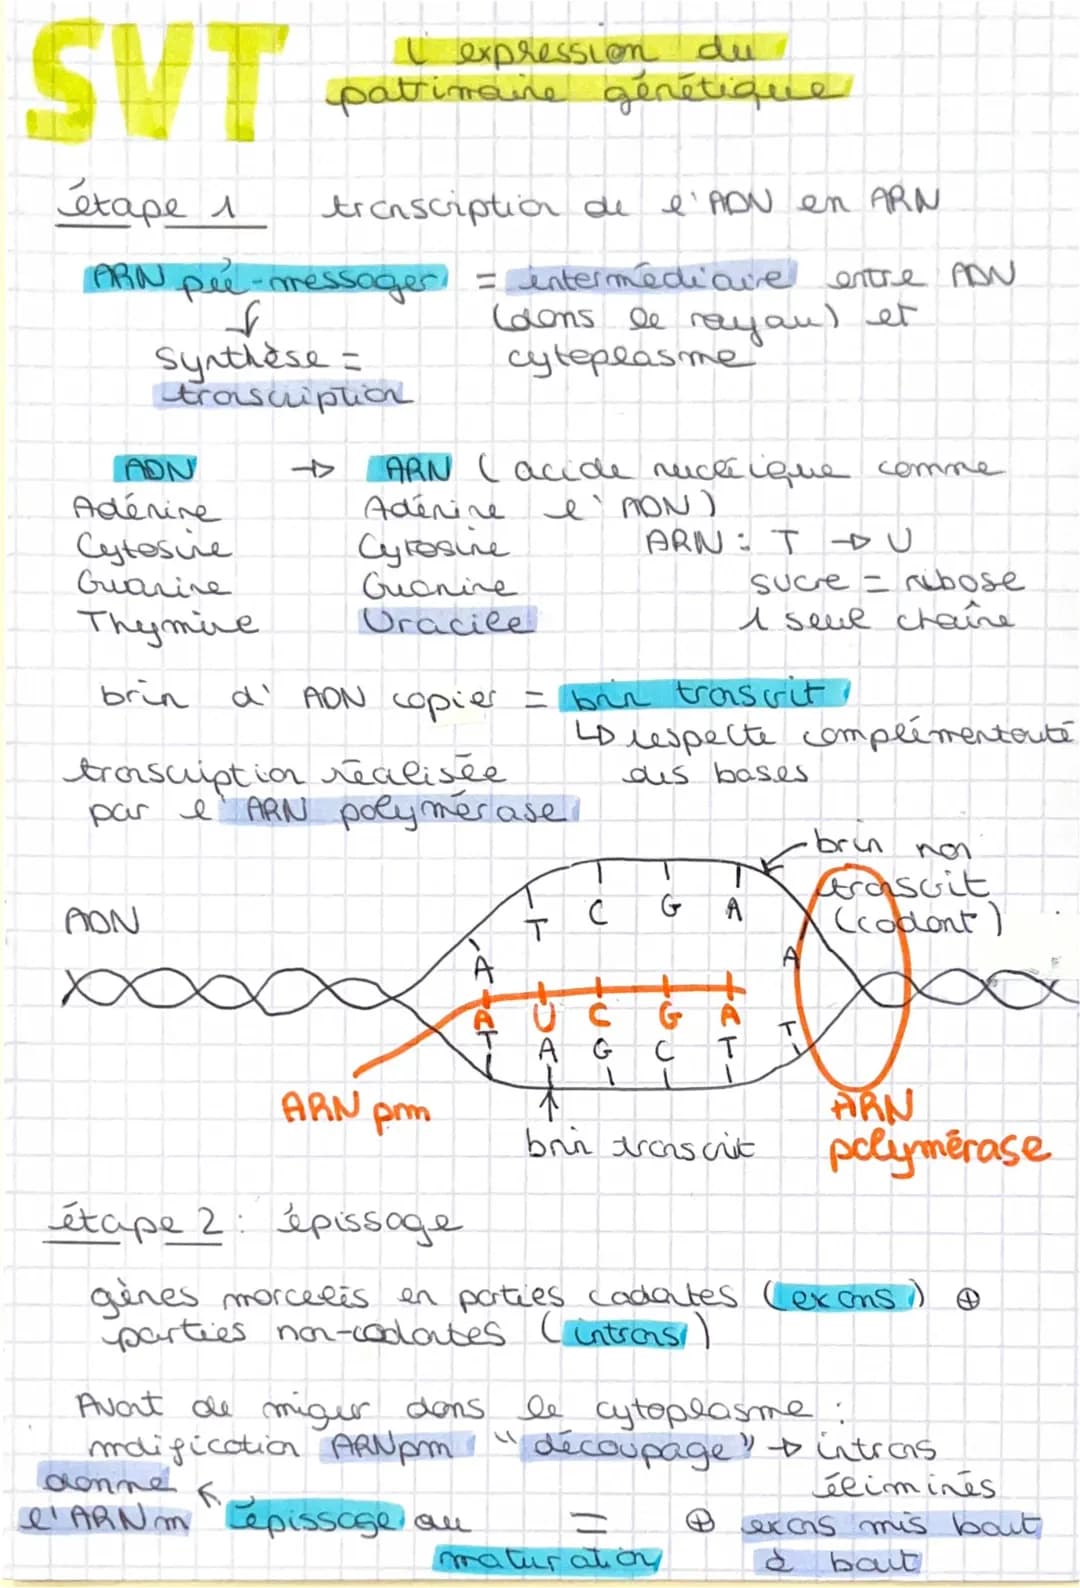 SVT
l'expression du
patrimoine génétique
étape 1 transcription de l'ADN en ARN
ARN pré-messager = intermédiaire entre ADN
(dans le noyau) et
cytoplasme
synthèse =
transcription
ADN → ARN (acide nucléique comme
l'ADN)
Adénine Adénine
Cytosine Cytosine
Guanine Guanine
Thymine Uracile
ARN : T → U
sucre = ribose
1 seul chaîne
brin d'ADN copier = brin transcrit
↳ respecte complémentarité
des bases
transcription réalisée
par l'ARN polymérase
brin non
transcrit
(codant)
ADN
A T C G A A
A U C G A
T A G C T T
ARN pm
brin transcrit
ARN
polymérase
étape 2 : épissage
gènes morcelés en parties codantes (exons) ⊕
parties non-codantes (introns)
Avant de migrer dans le cytoplasme :
modification ARNpm "découpage" → introns
éliminés
donne
l'ARNm ↖ épissage ou = ⊕ exons mis bout
maturation à bout